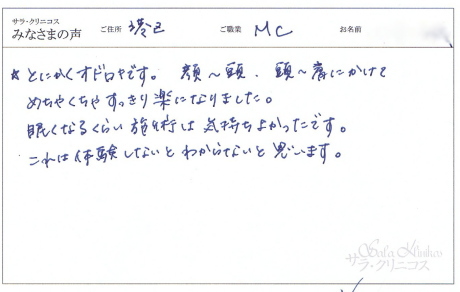 サラ・クリニコス
みなさまの声 ご住所 港区 ご職業 MC お名前
☆とにかくオドロキです。顔〜頭、頭〜肩にかけて
めちゃくちゃすっきり楽になりました。
眠くなるくらい施術は気持ちよかったです。
これは体験しないとわからないと思います。
Sala Klinikos
サラ・クリニコス